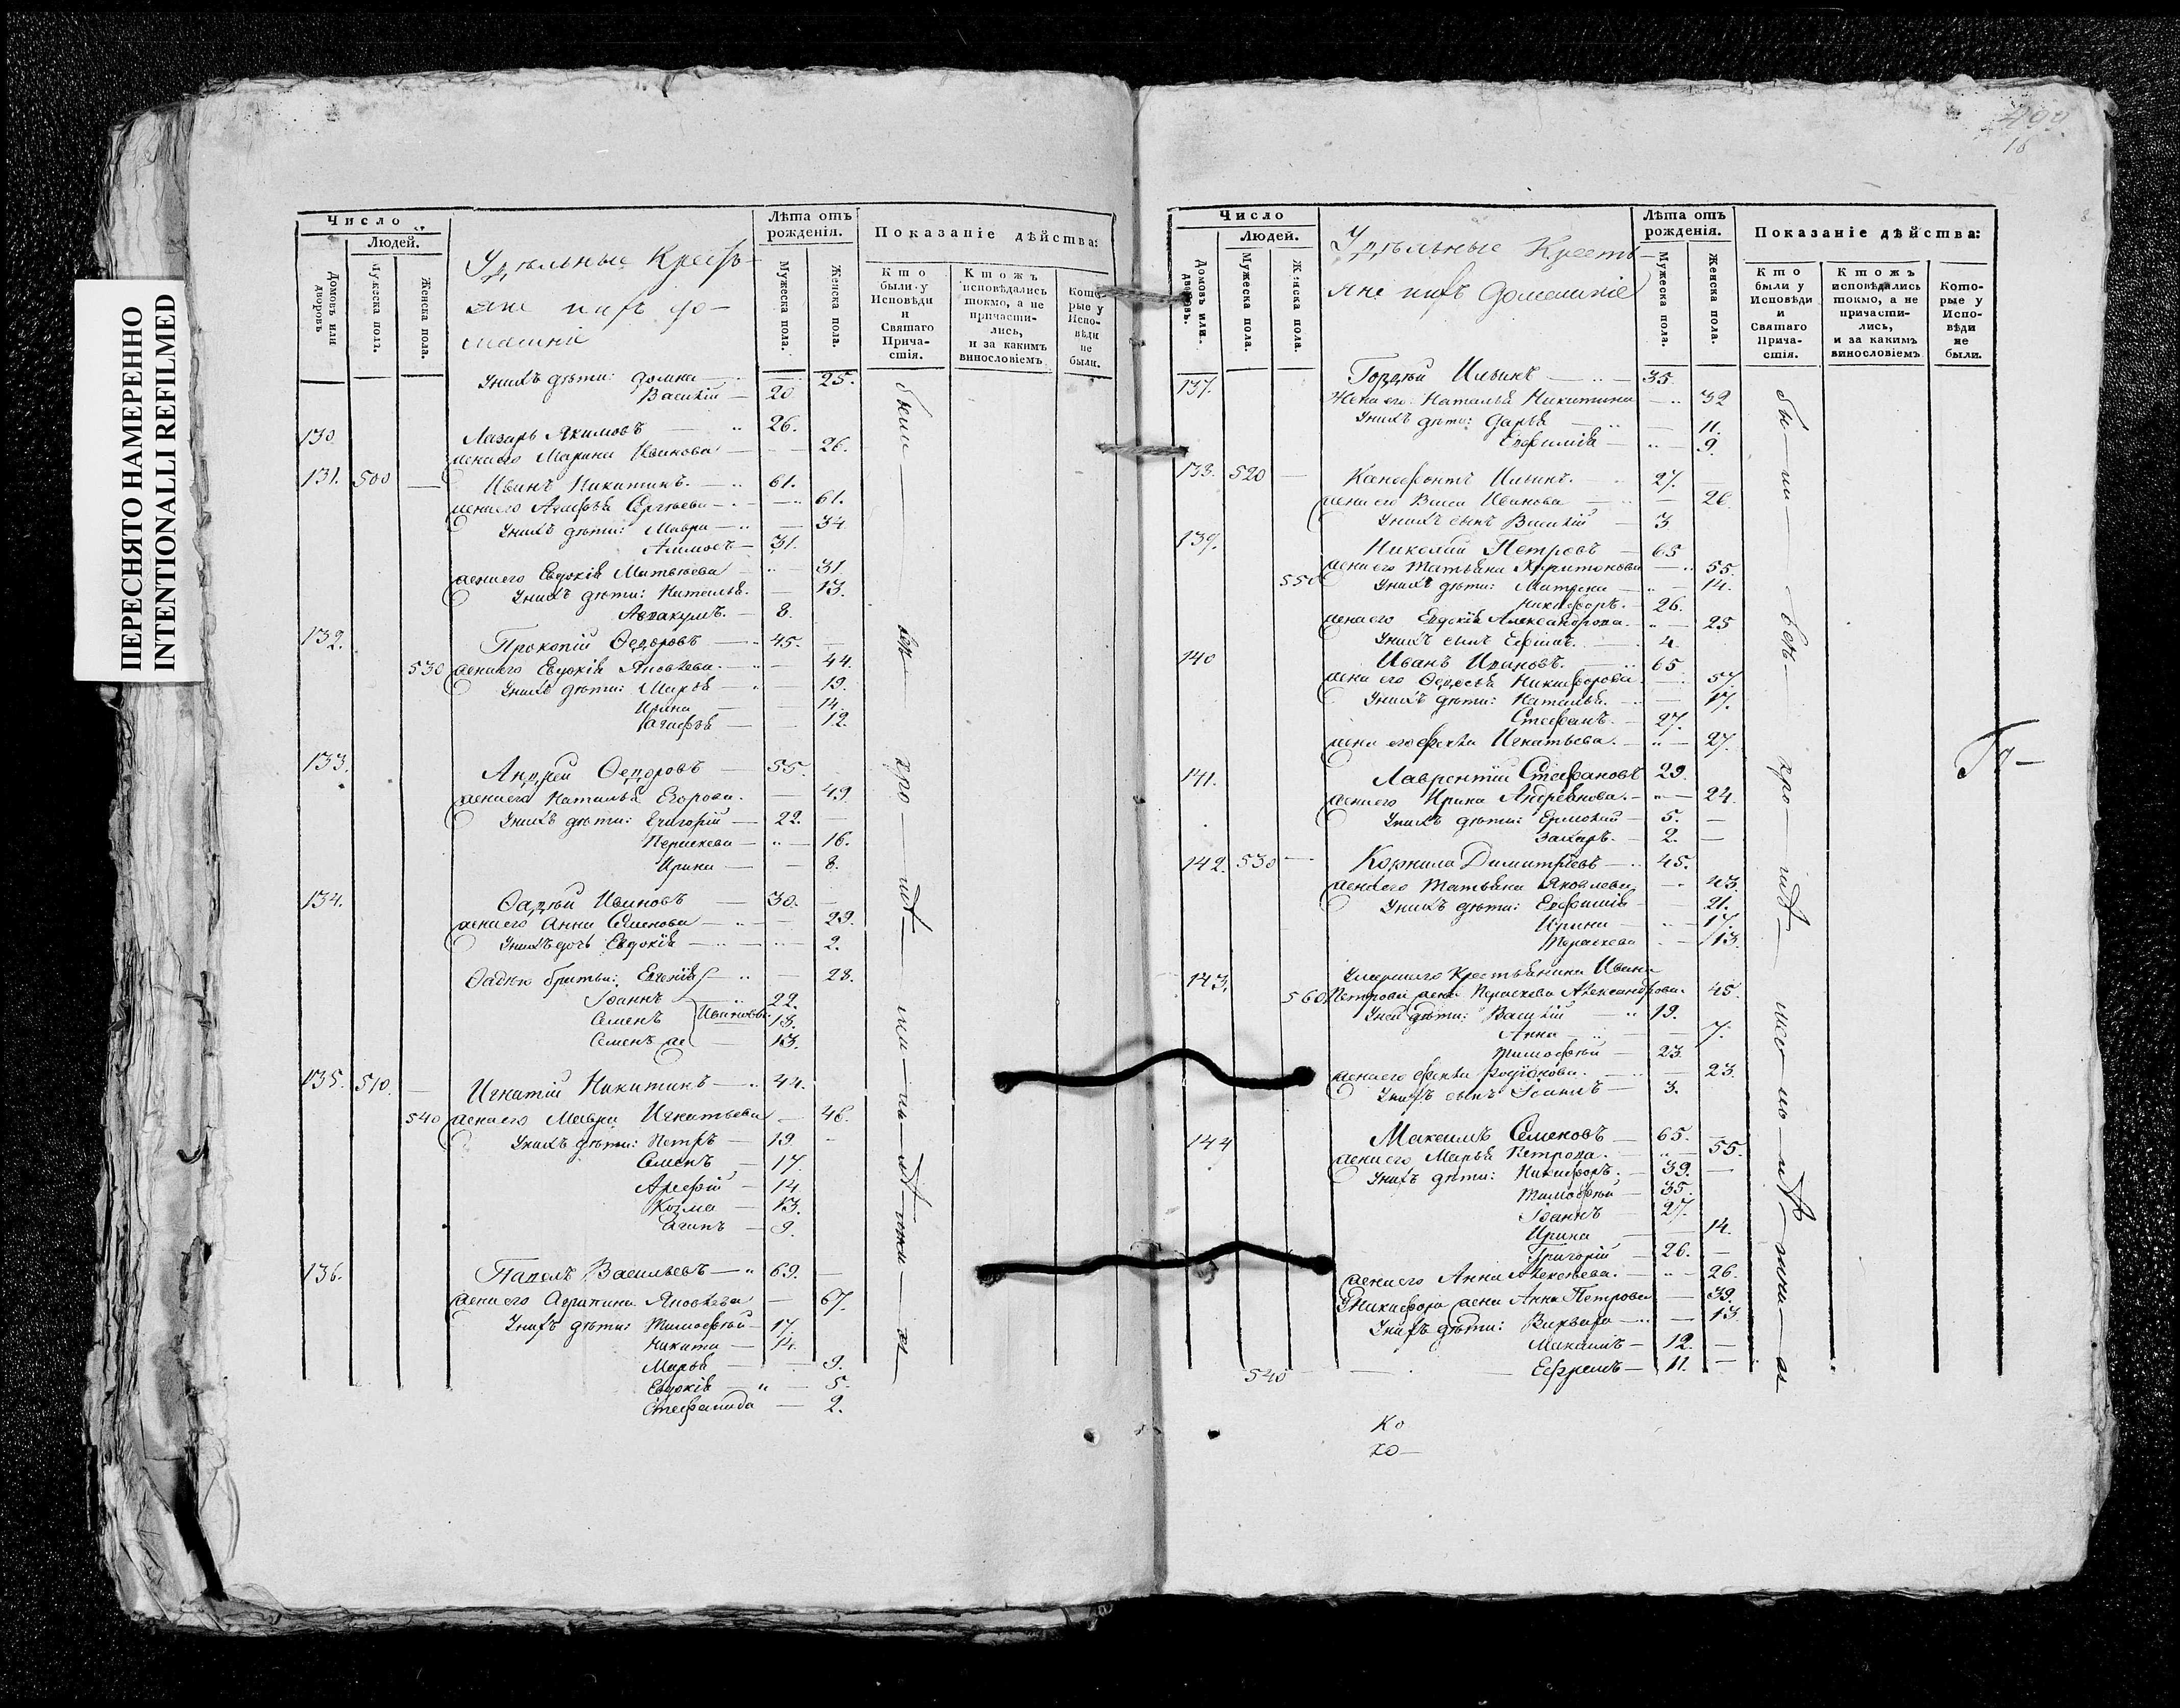 ПЕРЕСНЯТО НАМЕРЕННО
INTENTIONALLI REFILMED
Число
Людей.
Домовъ или дворовъ
Мужеска пола.
Женска пола.
Удѣльные Крестья-
яне ихъ до-
машніе
Лѣта отъ рожденія.
Мужеска пола.
Женска пола.
Показаніе дѣйства:
Кто были у Исповѣди и Святаго Прича-стія.
Ктожъ исповѣдались токмо, а не причасти-лись, и за какимъ винословіемъ
Кото-рые у Испо-вѣди не были.
У нихъ дѣти: Домна — 25.
Василій — 20.
130. Лазарь Якимовъ — 26.
жена его Марина Иванова — 26.
131. 500 Иванъ Никитинъ. — 61.
жена его Агафья Сергѣева — 61.
У нихъ дѣти: Мавра — 34
31.
жена его Евдокія Матвѣева — 31
У нихъ дѣти: Наталья. — 13.
Аввакумъ. — 8.
132. Прокопій Ѳедоровъ — 45.
530 жена его Евдокія Яковлева. — 44.
У нихъ дѣти: Марья — 19.
Ирина — 14.
Агафья — 12.
133. Андрей Ѳедоровъ — 55.
жена его Наталья Егорова. — 49
У нихъ дѣти: Григорій — 22.
Параскева — 16.
Ирина — 8.
134. Ѳадѣй Ивановъ — 30.
жена его Анна Семенова — 29.
У нихъ дочь Евдокія — 2.
Ѳадѣю братья: Евгенія — 28.
Іоаннъ — 22.
Семенъ Ивановы — 13.
Семенъ же — 13.
135. 510. Игнатій Никитинъ — 44.
540 жена его Мавра Игнатьева — 46.
У нихъ дѣти: Петръ — 19.
Семенъ — 17.
Арефій — 14
Козма — 13.
9.
136. Павелъ Васильевъ — 69.
жена его Аграпина Яковлева — 67.
У нихъ дѣти: Тимофѣй — 17
Никита — 14.
Марья — 9.
Евдокія — 5.
Стефанида — 2.
были всѣ
499
16
Число
Людей.
Домовъ или дворовъ.
Мужеска пола.
Женска пола.
Удѣльные Кресть-
яне ихъ домашніе
Лѣта отъ рожденія.
Мужеска пола.
Женска пола.
Показаніе дѣйства:
Кто были у Исповѣди и Святаго Прича-стія.
Ктожъ исповѣдались токмо, а не причасти-лись, и за какимъ винословіемъ
Кото-рые у Испо-вѣди не были.
137. Гордѣй Ильинъ — 35.
Жена его Наталья Никитина — 32
У нихъ дѣти: Дарья — 11.
Евфимія — 9.
138. 520 Ксенофонтъ Ильинъ. — 27.
жена его Васса Иванова — 26.
У нихъ сынъ Василій — 3
139. Николай Петровъ — 65
жена его Татьяна Харитонова — 55.
550 У нихъ дѣти: Матрена — 14.
Никифоръ. — 26.
жена его Евдокія Александрова. — 25
У нихъ сынъ Ефимъ. — 4.
140 Иванъ Ивановъ. — 65
жена его Ѳедосья Никифорова. — 57.
У нихъ дѣти: Наталья. — 17.
Стефанъ. — 27.
жена его Фекла Игнатьева. — 27.
141. Лаврентій Стефановъ 29.
жена его Ирина Андреянова. — 24.
У нихъ дѣти: Ермолай — 5.
Захаръ. — 2.
142. 530 Корнила Димитріевъ — 45.
жена его Татьяна Яковлева — 43.
У нихъ дѣти: Евфимія — 21.
Ирина — 17
Параскева — 13.
143. Умершаго крестьянина Ивана
560 Петрова жена Параскева Александрова. 45.
У ней дѣти: Василій — 19.
Анна — 7.
Тимофѣй — 23.
жена его Фекла Родіонова. — 23.
У нихъ сынъ Іоаннъ — 3.
144 Максимъ Семеновъ — 65.
жена его Марья Петрова. — 55.
У нихъ дѣти: Никифоръ. — 39.
Тимофѣй — 35.
Іоаннъ — 27.
Ирина — 14.
Григорій — 26.
жена его Анна Алексѣева. — 26.
У Никифора жена Анна Петрова — 39.
У нихъ дѣти: Варвара — 13.
Максимъ — 12.
540 Ефремъ — 11.
бы — ли — всѣ
Гд —